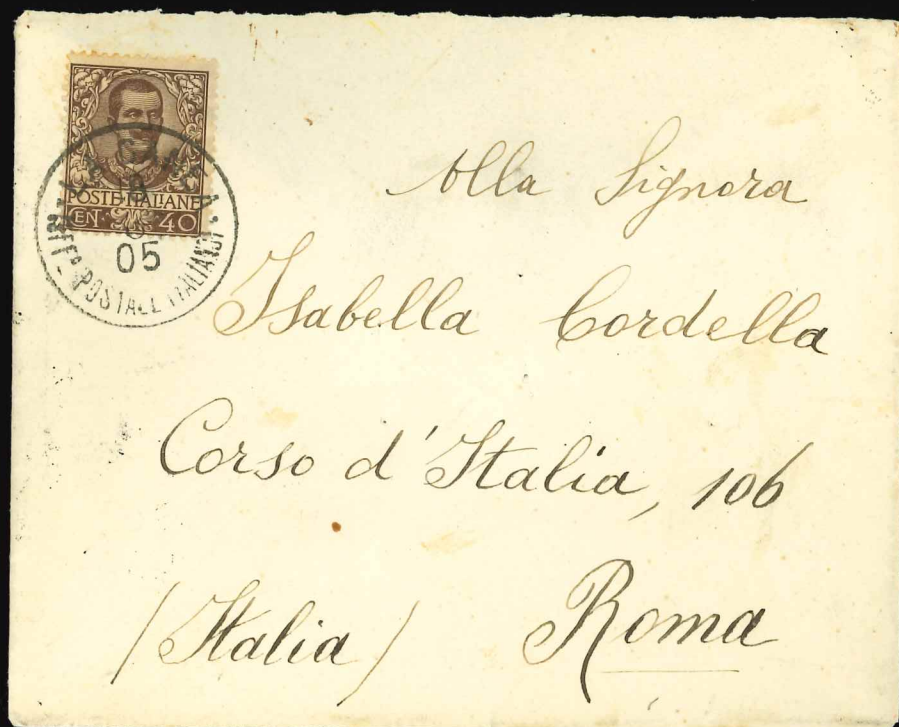 POSTE·ITALIANE
CEN. 40
05
UFFº POSTALE ITALIANO
Alla Signora
Isabella Cordella
Corso d'Italia, 106
(Italia) Roma